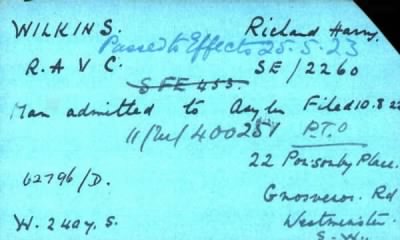 WILKINS. Richard Harry.
Passed to Effects 25.5.23
R.A.V.C. SE/2260
S FE 455.
Man admitted to Asylm Filed 10.8.22
11/M/400251 P.T.O
22 Ponsonby Place.
62796/D. Grosvenor. Rd
Westminster.
W. 2 kay. S. S.W.